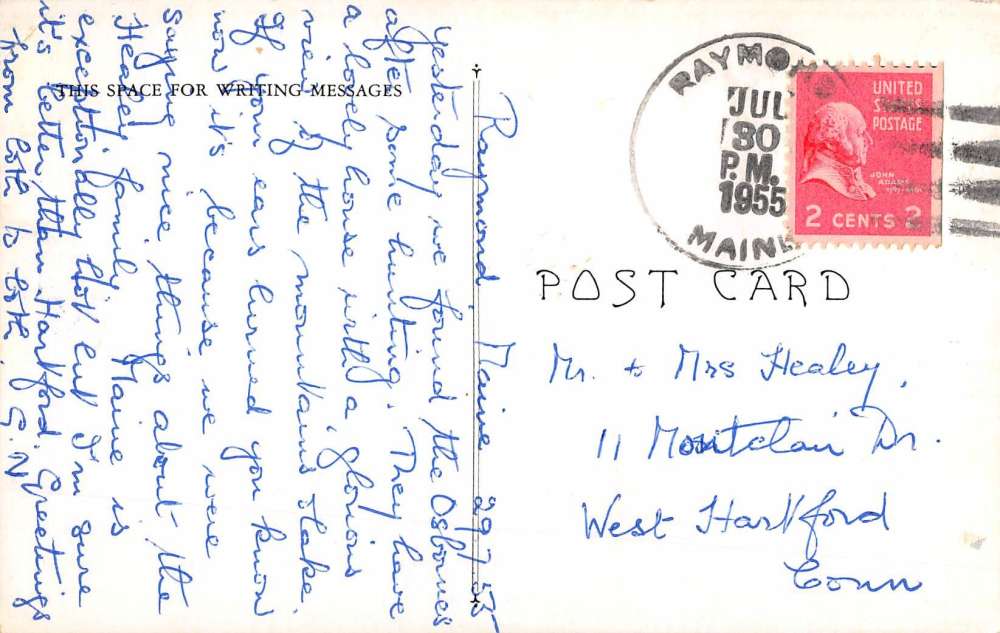 THIS SPACE FOR WRITING MESSAGES
Raymond Maine 29-7-55
Yesterday we found the Osbornes
after some hunting. They have
a lovely house with a glorious
view of the mountains & lake.
If your ears burned you know
now it's because we were
saying nice things about the
Healey family. Maine is
exceptionally Hot but I'm sure
it's better than Hartford. Greetings
from both to both. G. N
RAYMOND
JUL
30
P.M.
1955
MAINE
UNITED
STATES
POSTAGE
JOHN
ADAMS
2 CENTS 2
POST CARD
Mr. & Mrs Healey,
11 Montclair Dr.
West Hartford
Conn